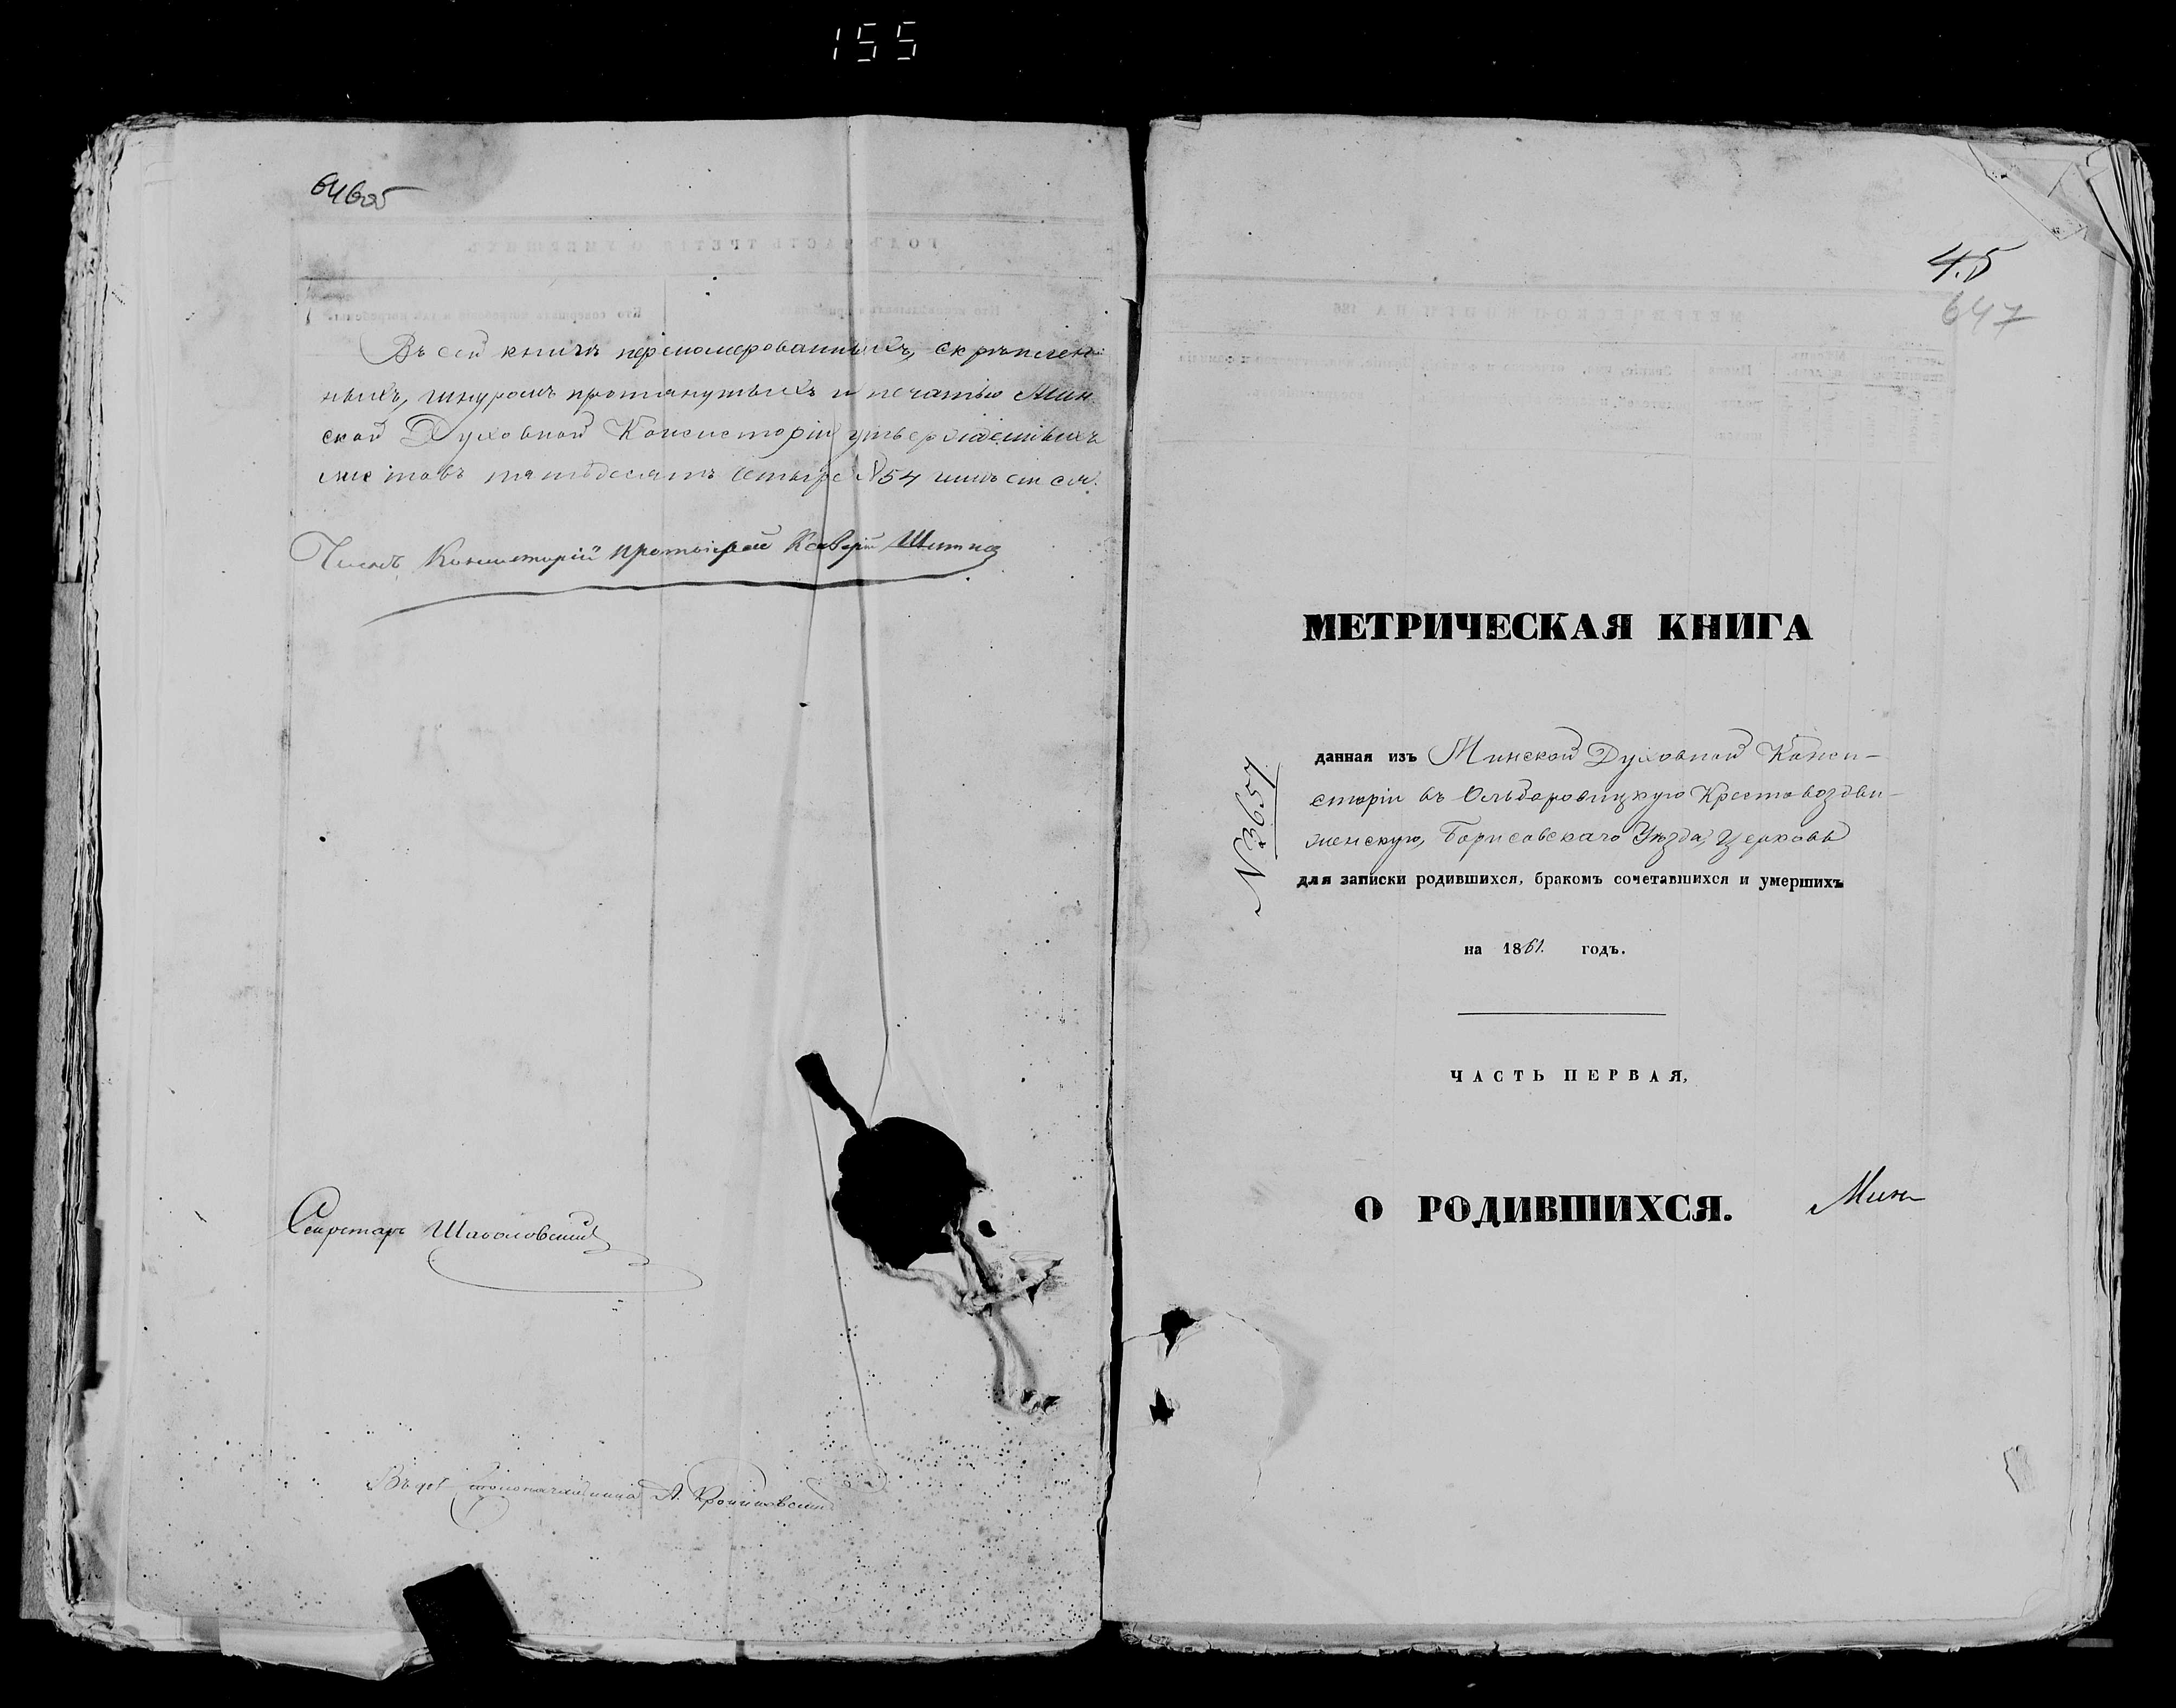 155
646об
Въ сей книгѣ перенумерованныхъ, скрѣплен-
ныхъ, шнуромъ протянутыхъ и печатью Мин-
ской Духовной Консисторіи утвержденныхъ
листовъ пятьдесятъ четыре № 54 имѣется.
Членъ Консисторіи Протоіерей
Секретарь
Столоначальника А.
45
647
МЕТРИЧЕСКАЯ КНИГА
№ 3657
данная изъ Минской Духовной Конси-
сторіи въ Ольберовицкую Крестовоздви-
женскую, Борисовскаго Уѣзда, Церковь
для записки родившихся, бракомъ сочетавшихся и умершихъ
на 1861. годъ.
ЧАСТЬ ПЕРВАЯ,
О РОДИВШИХСЯ.
Мин-